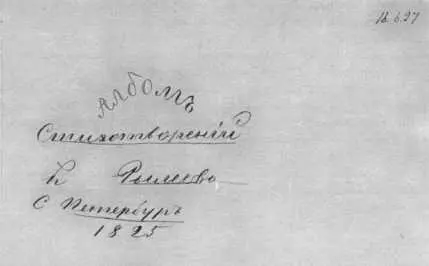 18.6.97
Альбомъ
Стихотвореній
К Рылеева
С Петербургъ
1825